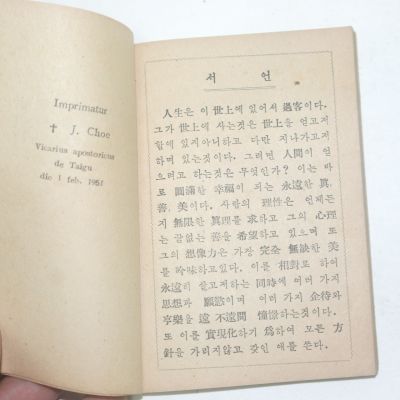 Imprimatur
✝ J. Choe
Vicarius apostoricus
de Taigu
die 1 feb. 1951
서 언
人生은 이 世上에 있어서 過客이다.
그가 世上에 사는것은 世上을 얻고저
함에 있지아니하고 다만 지나가고저
하며 있는것이다. 그러면 人間이 얻
으려고 하는것은 무엇인가? 이는 바
로 圓滿한 幸福이 되는 永遠한 眞,
善, 美이다. 사람의 理性은 언제든
지 無限한 眞理를 求하고 그의 心理
는 끝없는 善을 希望하고 있으며 또
그의 想像力은 가장 完全 無缺한 美
를 吟味하고있다. 이를 相對로 하여
永遠히 살고저하는 同時에 여러 가지
思想과 願慾이며 여러 가지 企待와
亨樂을 遠 不遠間 憧憬하는것이다.
또 이를 實現化하기 爲하여 모든 方
針을 가리지않고 갖인 애를 쓴다.